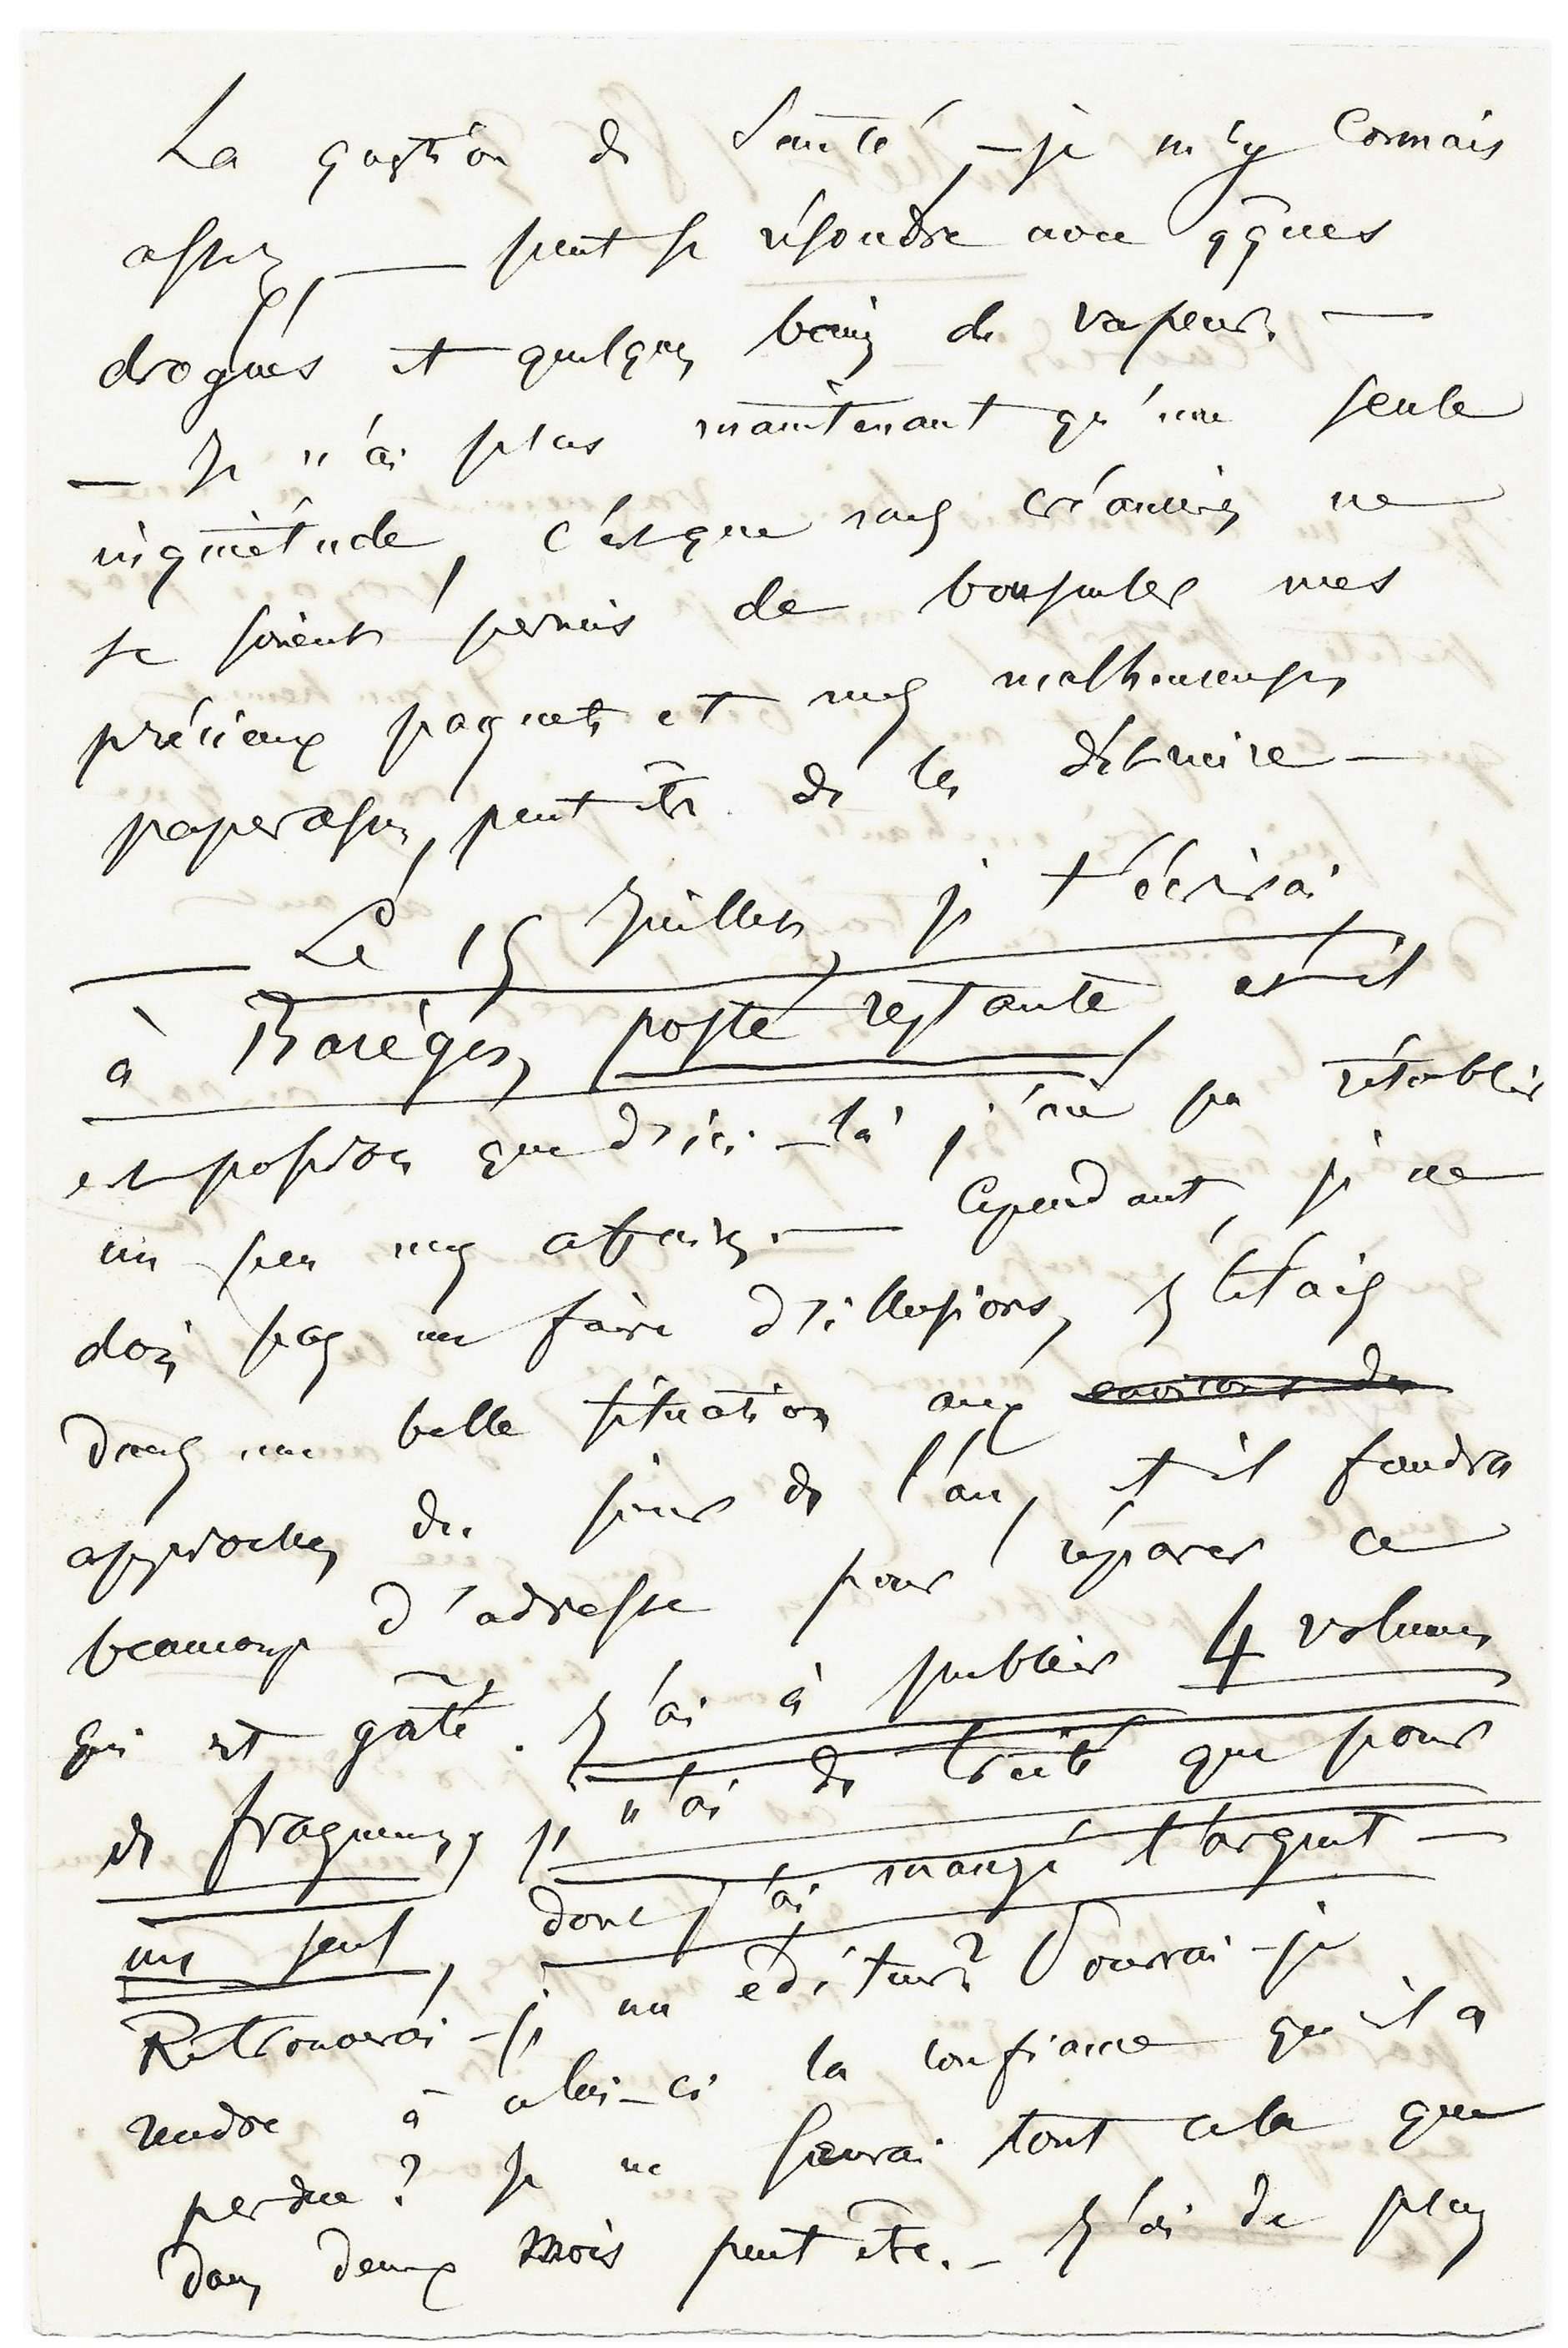 La question de Santé, — je m'y connais
assez, — peut se résoudre avec qques
drogues et quelques bains de vapeur. —
— Je n'ai plus maintenant qu'une seule
inquiétude, c'est que mes créanciers ne
se soient permis de bousculer mes
précieux paquets et mes malheureuses
paperasses, peut être de les détruire —
— Le 15 Juillet, je t'écrirai
à Barèges, poste restante, et s'il
est possible que d'ici-là j'aie pu rétablir
un peu mes affaires. — Cependant, je ne
dois pas me faire d'illusions, J'étais
dans une belle situation aux environs du
approches du jour de l'an, et il faudra
beaucoup d'adresse pour réparer ce
qui est gâté. J'ai à publier 4 volumes
de fragments, je n'ai de traité que pour
un seul, dont j'ai mangé l'argent —
Retrouverai-je un éditeur? Pourrai-je
rendre à celui-ci la confiance qu'il a
perdue? Je ne saurai tout cela que
dans deux mois peut être. — J'ai de plus